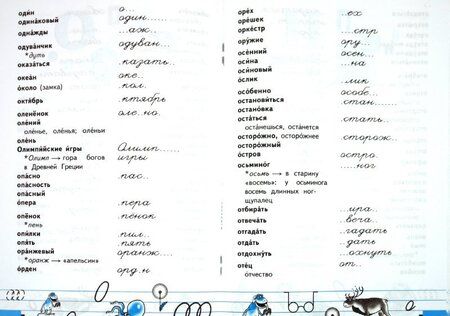 оди́н о...
одина́ковый один......
одна́жды ...аж..
одува́нчик одуван...
*дуть
оказа́ться .казать..
океа́н оке..
о́коло (замка) .кол.
октя́брь .ктябрь
оленёнок оле..но.
оле́ний
оленье, оленья; оленьи
оле́нь
Олимпи́йские и́гры Олимп......
*Олимп → гора богов игры
в Древней Греции
опа́сно .пас..
опа́сность
опа́сный
о́пера .пера
опёнок .пёнок
*пень
опи́лки .пил..
опя́ть .пять
ора́нжевый оранж....
*оранж → «апельсин»
о́рден орд.н
оре́х ..ех
оре́шек
орке́стр ...стр
ору́жие ору...
осе́нний осен...
оси́на ...на
оси́новый
о́слик ..лик
осо́бенно особе..
останови́ться стан......
остано́вка
оста́ться ..стать..
оста́нешься, оста́нется
осторо́жно, осторо́жнее ..сторож..
осторо́жный
о́стров остро.
осьмино́г .....ног
*осьмь → в старину
«восемь»: у осьминога
восемь длинных ног-
щупалец
отбира́ть ...ира..
отвеча́ть ..веча..
отгада́ть ..гадать
отда́ть ..дать
отдохну́ть ..охнуть
оте́ц от..
отчество
О